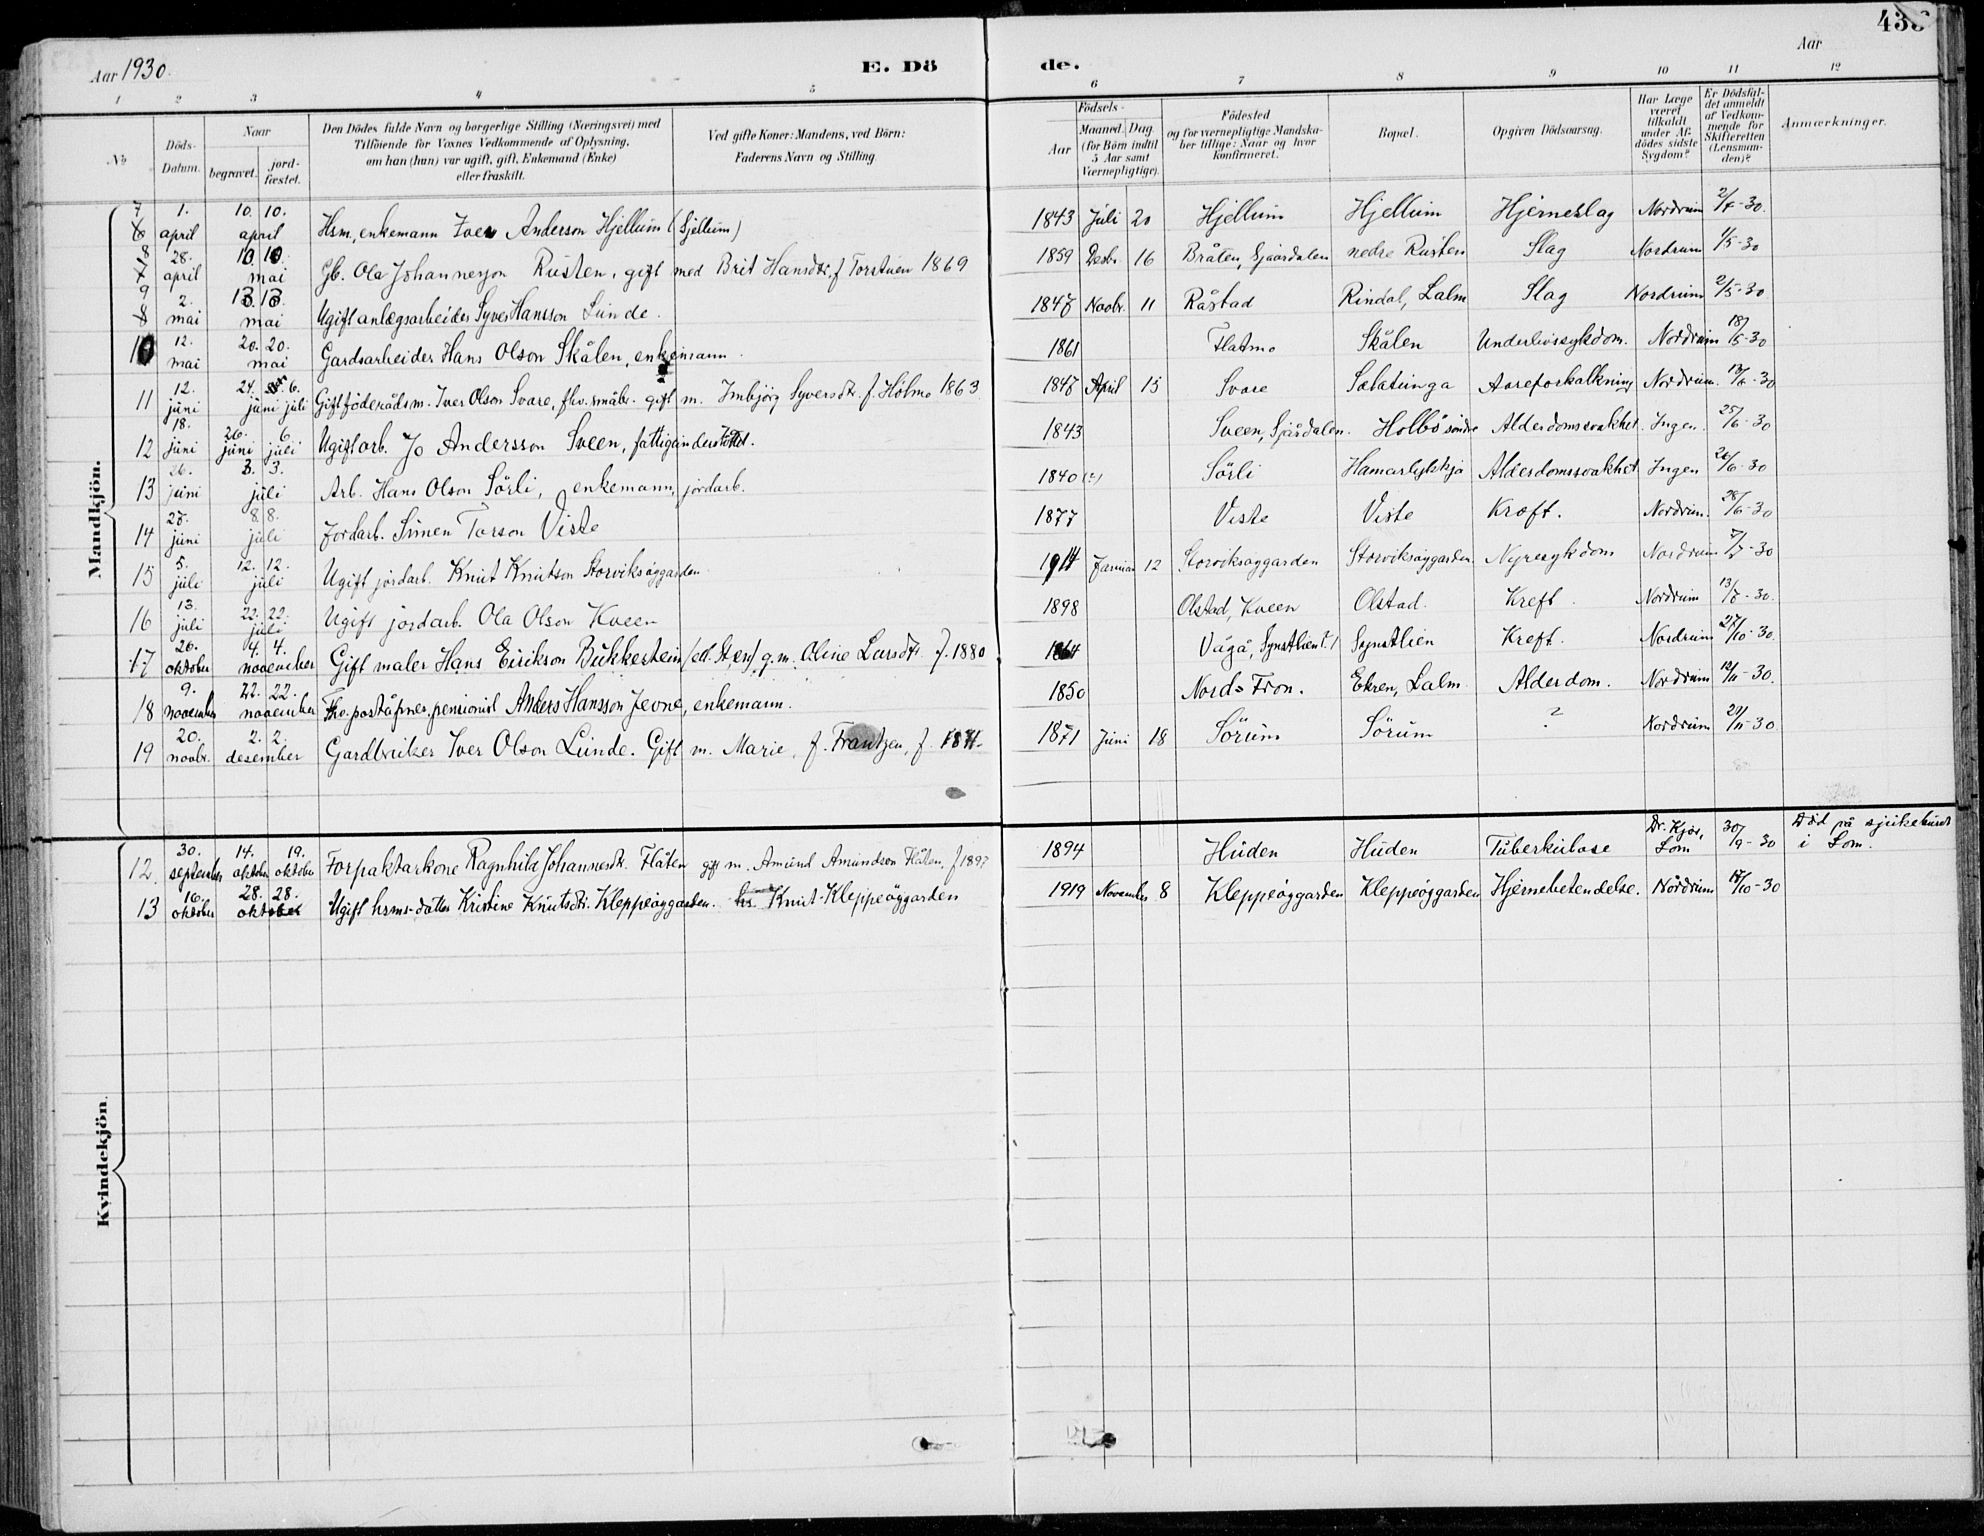 Aar 1930.
E. Dö
de.
Aar
1 2 3 4 5 6 7 8 9 10 11 12
No
Döds-Datum.
Naar
begravet.
jord-fæstet.
Den Dödes fulde Navn og borgerlige Stilling (Næringsvei) med
Tilföiende for Voxnes Vedkommende af Oplysning,
om han (hun) var ugift, gift, Enkemand (Enke)
eller fraskilt.
Ved gifte Koner: Mandens, ved Börn:
Faderens Navn og Stilling.
Födsels-
Aar
Maaned. Dag.
(for Börn indtil
5 Aar samt
Værnepligtige).
Födested
og for værnepligtige Mandska-
ber tillige: Naar og hvor
konfirmeret.
Bopæl.
Opgiven Dödsaarsag.
Har Læge
været
tilkaldt
under Af-
dödes sidste
Sygdom?
Er Dödsfal-
det anmeldt
af Vedkom-
mende for
Skifteretten
(Lensman-
den)?
Anmærkninger.
Mandkjön.
7 1. april 10. 10. april Hsm, enkemann Iver Anderson Hjellum (Sjellum) 1843 Juli 20 Hjellum Hjellum Hjerneslag Nordrum 2/4-30.
8 28. april 10 10. mai Gb. Ola Johannesson Rusten, gift med Brit Hansdtr. f Torstuen 1869 1859 Desbr. 16 Bråten, Sjåårdalen nedre Rusten Slag Nordrum 1/5-30
9 2. mai 13. 13. mai Ugift anlægsarbeider Syver Hansson Lunde. 1847 Novbr. 11 Råstad Rindal, Lalm Slag Nordrum 2/5-30
10 12. mai 20. 20. mai Gardsarbeider Hans Olson Skålen, enkemann. 1861 Flatmo Skålen Underlivssykdom. Nordrum 18/5-30
11 12. juni 24. juni 6. juli Gift föderådsm. Iver Olson Svare, fhv. småbr. gift m. Imbjörg Syversdtr. f. Holmo 1863 1847 April 15 Svare Sælatunga Aareforkalkning Nordrum. 12/6-30
12 18. juni 26. juni 6. juli Ugift arb. Jo Andersson Sveen, fattigunderstöttet. 1843 Sveen, Sjårdalen. Holbö söndre Alderdomssvakhet Ingen. 25/6-30
13 26. juni 3. 3. juli Arb. Hans Olson Sörli, enkemann, jordarb. 1840 (?) Sörli Hamarlykkja Alderdomssvakhet Ingen 26/6-30
14 27. juni 8. 8. juli Jordarb. Simen Torson Viste 1877 Viste Viste Kræft. Nordrum. 28/6-30
15 5. juli 12. 12. juli Ugift jordarb. Knut Knutson Storviksöygarden. 1914 Januar 12 Storviksöygarden Storviksöygarden Nyresykdom Nordrum 7/7-30
16 13. juli 22. 22. juli Ugift jordarb. Ola Olson Kveen 1898 Olstad, Kveen Olstad. Kreft. Nordrum 13/7-30.
17 26. oktober 4. 4. november Gift maler Hans Eirikson Bukkestein g.m. Oline Larsdtr. f. 1880 1864 Vågå, Synstlien Synstlien Kreft. Nordrum 27/10-30.
18 9. november 22. 22. november Fhv. poståpner, pensionist Anders Hansson Jevne, enkemann. 1850 Nord-Fron. Ekren, Lalm Alderdom. Nordrum 12/11-30.
19 20. novbr. 2. 2. desember Gardbruker Iver Olson Lunde. Gift m. Marie, f. Frantzen, f. 1871. 1871 Juni 18 Sörum Sörum ? Nordrum 21/11-30
Kvindekjön.
12. 30. september 14. oktober 19. oktober Forpaktarkone Ragnhild Johannesdtr. Flåten gift m. Amund Amundsen Flåten, f 1897 1894 Huden Huden Tuberkulose Dr. Kjos, Lom 30/9-30 Död på sjukehuset i Lom.
13 16. oktober 28. 28. oktober Ugift hsms-datter Kristine Knutsdtr. Kleppeöygarden. hs. Knut Kleppeöygarden 1919 November 8 Kleppeöygarden Kleppeöygarden Hjernebetendelse. Nordrum 18/10-30